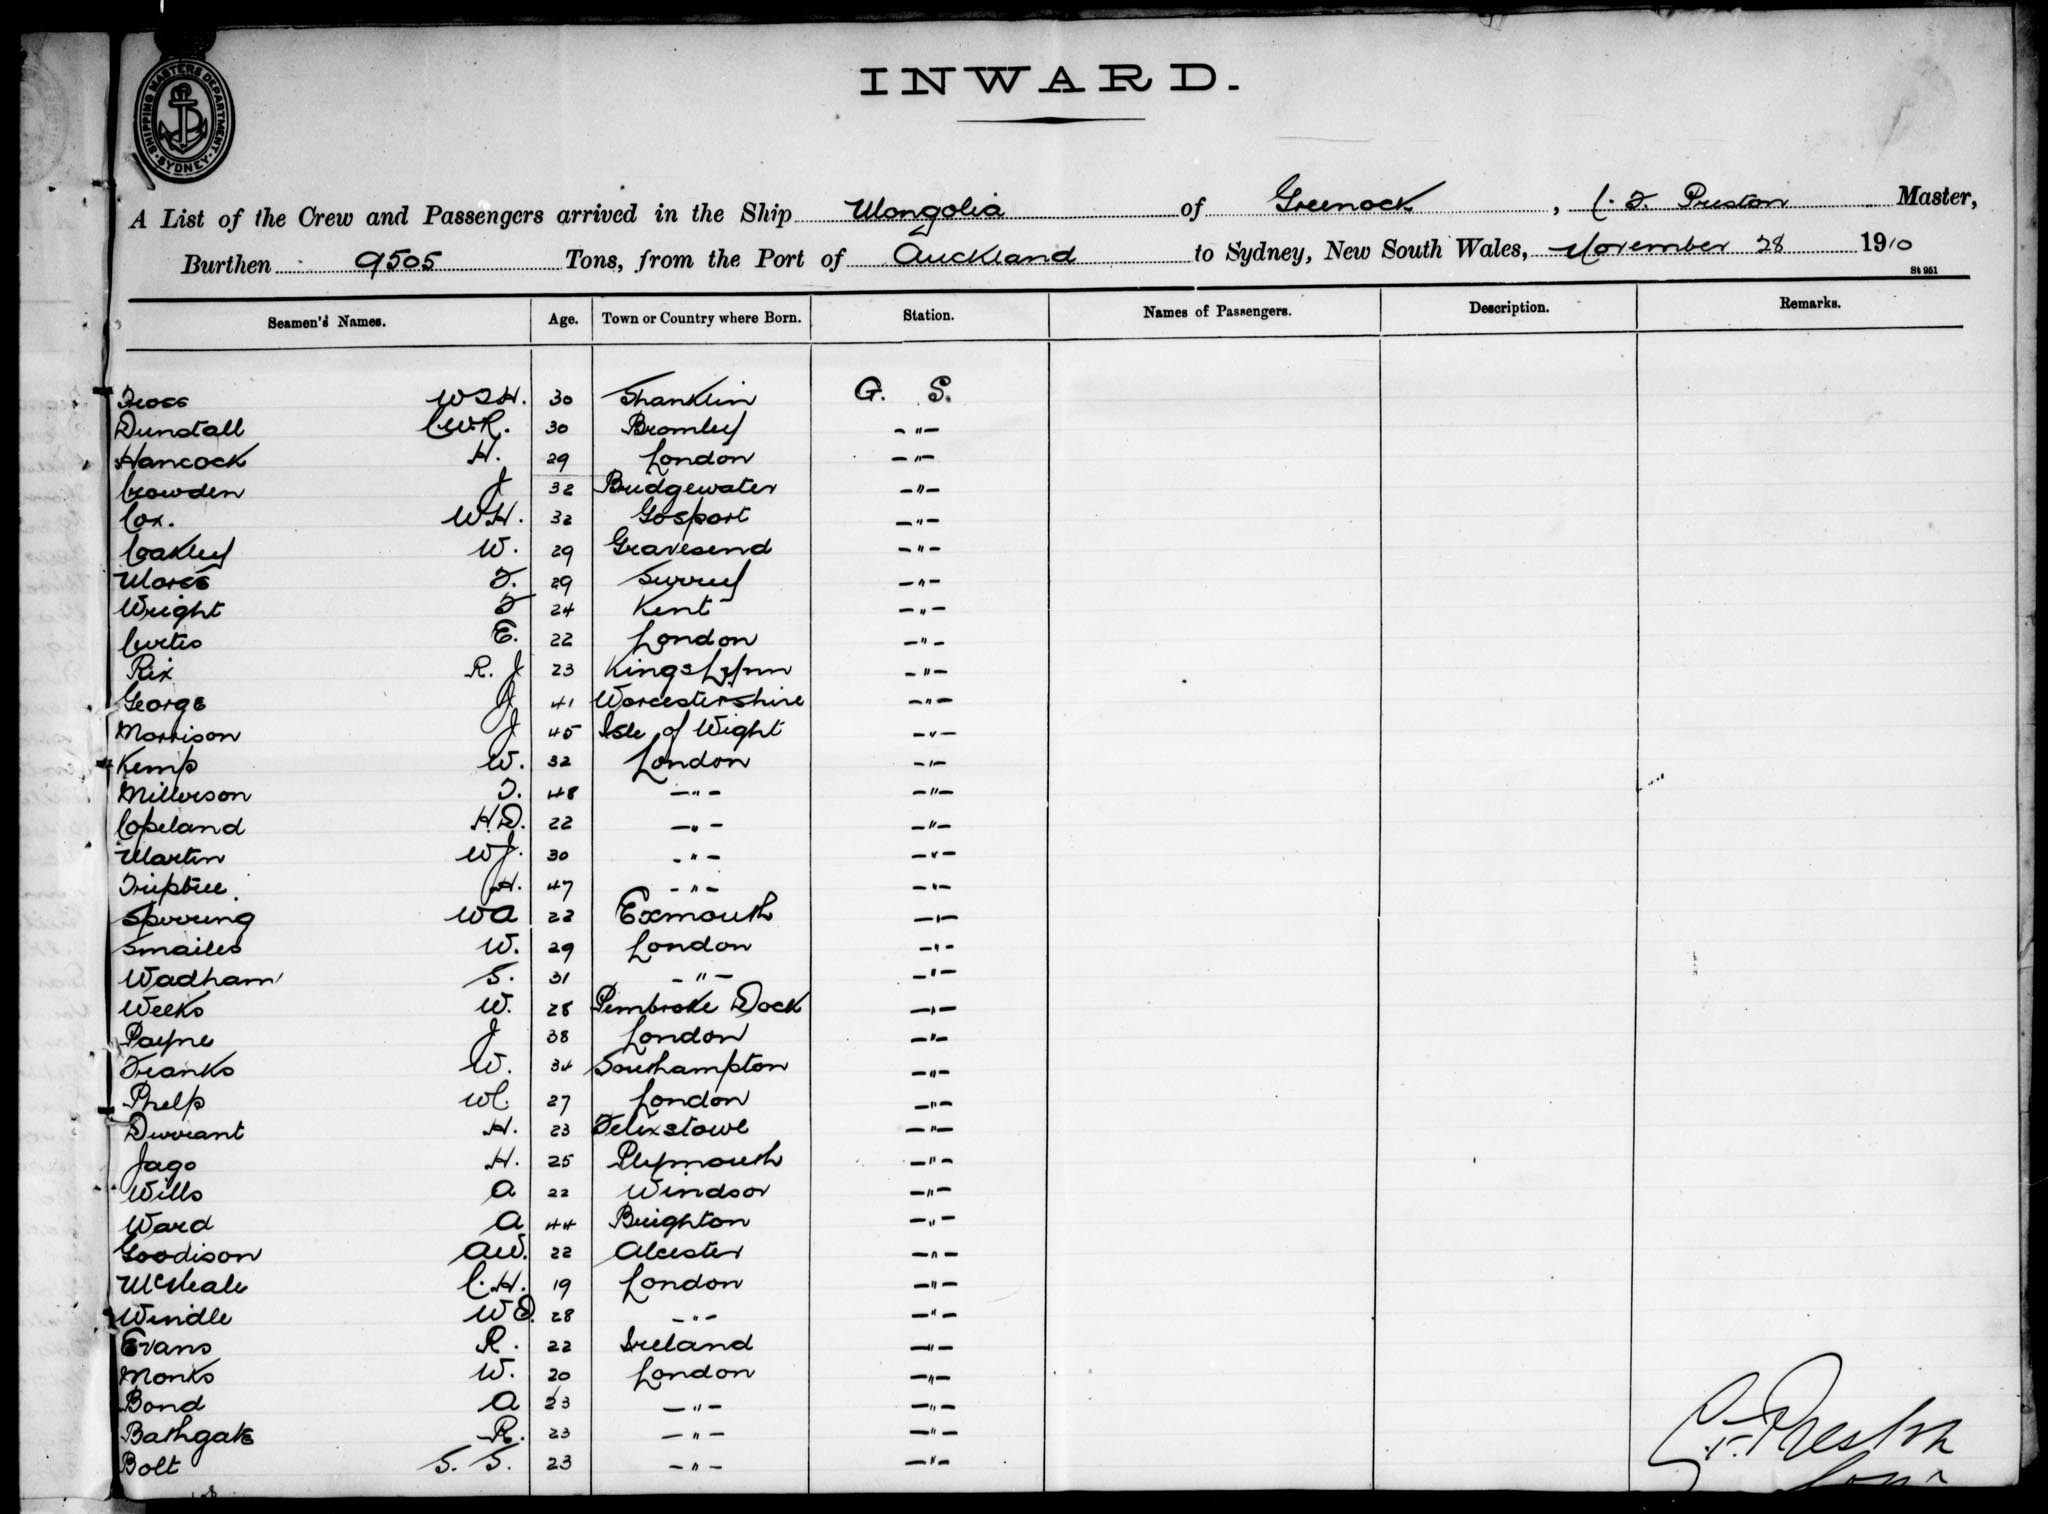 SHIPPING MASTERS DEPARTMENT · SYDNEY ·
INWARD.
A List of the Crew and Passengers arrived in the Ship Mongolia of Greenock, C. F. Preston Master,
Burthen 9505 Tons, from the Port of Auckland to Sydney, New South Wales, November 28 1910
St 951
Seamen's Names. Age. Town or Country where Born. Station. Names of Passengers. Description. Remarks.
W H. 30 Shanklin G. S.
Dunstall C.W.R. 30 Bromley -"-
Hancock H. 29 London -"-
Crowden J 32 Bridgewater -"-
Cox. W.H. 32 Gosport -"-
Coakley W. 29 Gravesend -"-
Morss F. 29 Surrey -"-
Wright F 24 Kent -"-
Curtis E. 22 London -"-
Rix R. J 23 Kings Lynn -"-
George J 41 Worcestershire -"-
Morrison J 45 Isle of Wight -"-
Kemp W. 32 London -"-
Millerson F. 48 -"- -"-
Copeland H.D. 22 -"- -"-
Martin W J. 30 -"- -"-
Triptree. H. 47 -"- -"-
Sperring W A 22 Exmouth -"-
Smailes W. 29 London -"-
Wadham S. 31 -"- -"-
Weeks W. 28 Pembroke Dock -"-
Payne J 38 London -"-
Franks W. 34 Southampton -"-
Phelp W C. 27 London -"-
Durrant H. 23 Felixstowe -"-
Jago H. 25 Plymouth -"-
Wills A 22 Windsor -"-
Ward A 44 Brighton -"-
Goodison A W. 22 Alcester -"-
McNeale C. H. 19 London -"-
Windle W E. 28 -"- -"-
Evans R. 22 Ireland -"-
Monks W. 20 London -"-
Bond A 23 -"- -"-
Bathgate R. 23 -"- -"-
Bolt S. S. 23 -"- -"-
C. F. Preston